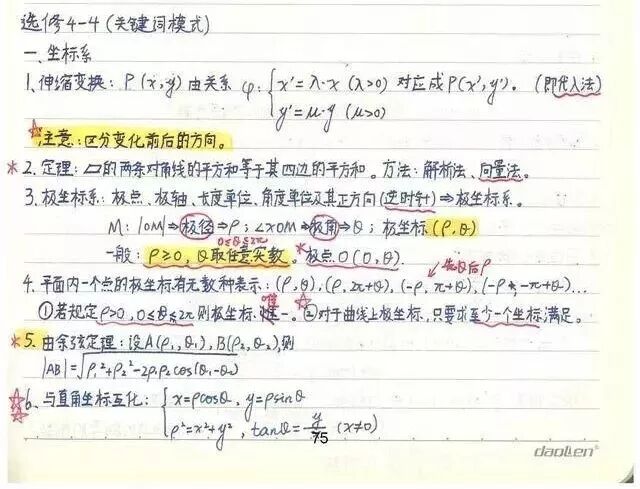 选修4-4(关键词模式)
一、坐标系
1.伸缩变换:P(x,y)由关系 φ:{x'=λ·x (λ>0) 对应成P(x',y')。(即代入法)
y'=μ·y (μ>0)
主意:区分变化前后的方向。
*2.定理:▱的两条对角线的平方和等于其四边的平方和。方法:解析法、向量法。
3.极坐标系:极点、极轴、长度单位、角度单位及其正方向(逆时针)⇒极坐标系。
M:|OM|⇒极径⇒ρ;∠xOM⇒极角⇒θ;极坐标(ρ,θ)
0≤θ≤2π
一般:ρ≥0,θ取任意实数。*极点O(0,θ).
先θ后ρ
4.平面内一个点的极坐标有无数种表示:(ρ,θ),(ρ,2π+θ),(-ρ,π+θ),(-ρ,-π+θ)...
①若规定ρ>0,0≤θ≤2π则极坐标唯一。②对于曲线上极坐标,只要求至少一个坐标满足。
*5.由余弦定理:设A(ρ₁,θ₁),B(ρ₂,θ₂),则
|AB|=√ρ₁²+ρ₂²-2ρ₁ρ₂cos(θ₁-θ₂)
6、与直角坐标互化:{x=ρcosθ,y=ρsinθ
ρ²=x²+y²,tanθ=y/x (x≠0)
75
daolien®